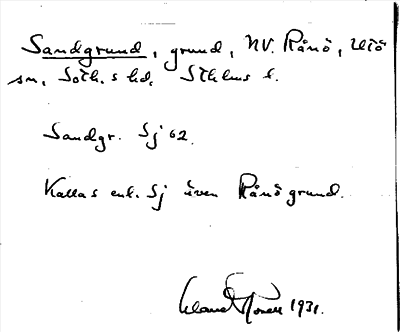 Sandgrund, grund, NV. Rånö, Utö
sn, Soth.s hd, Sthlms l.
Sandgr. Sj 62.
Kallas enl. Sj även Rånögrund.
1931.